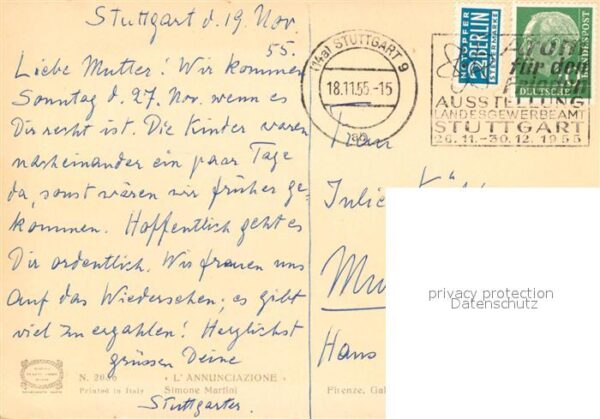 Stuttgart d. 19. Nov.
55.
Liebe Mutter! Wir kommen
Sonntag d. 27. Nov. wenn es
Dir recht ist. Die Kinder waren
nacheinander ein paar Tage
da, sonst wären wir früher ge-
kommen. Hoffentlich geht es
Dir ordentlich. Wir freuen uns
auf das Wiedersehen; es gibt
viel zu erzählen! Herzlichst
grüssen Deine
Stuttgarter.
N. 2636 « L'ANNUNCIAZIONE »
Printed in Italy Simone Martini
Firenze, Gal
(14a) STUTTGART 9
18.11.55-15
NOTOPFER
2 BERLIN
STEUERMARKE
DEUTSCHE BUNDESPOST
Atom
für den
Frieden
AUSSTELLUNG
LANDESGEWERBEAMT
STUTTGART
26.11.-30.12.1955
Frau
Julie
Mu
Hans
privacy protection
Datenschutz